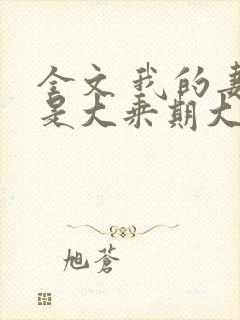 全文我的妻
是大乘期大
旭蒼